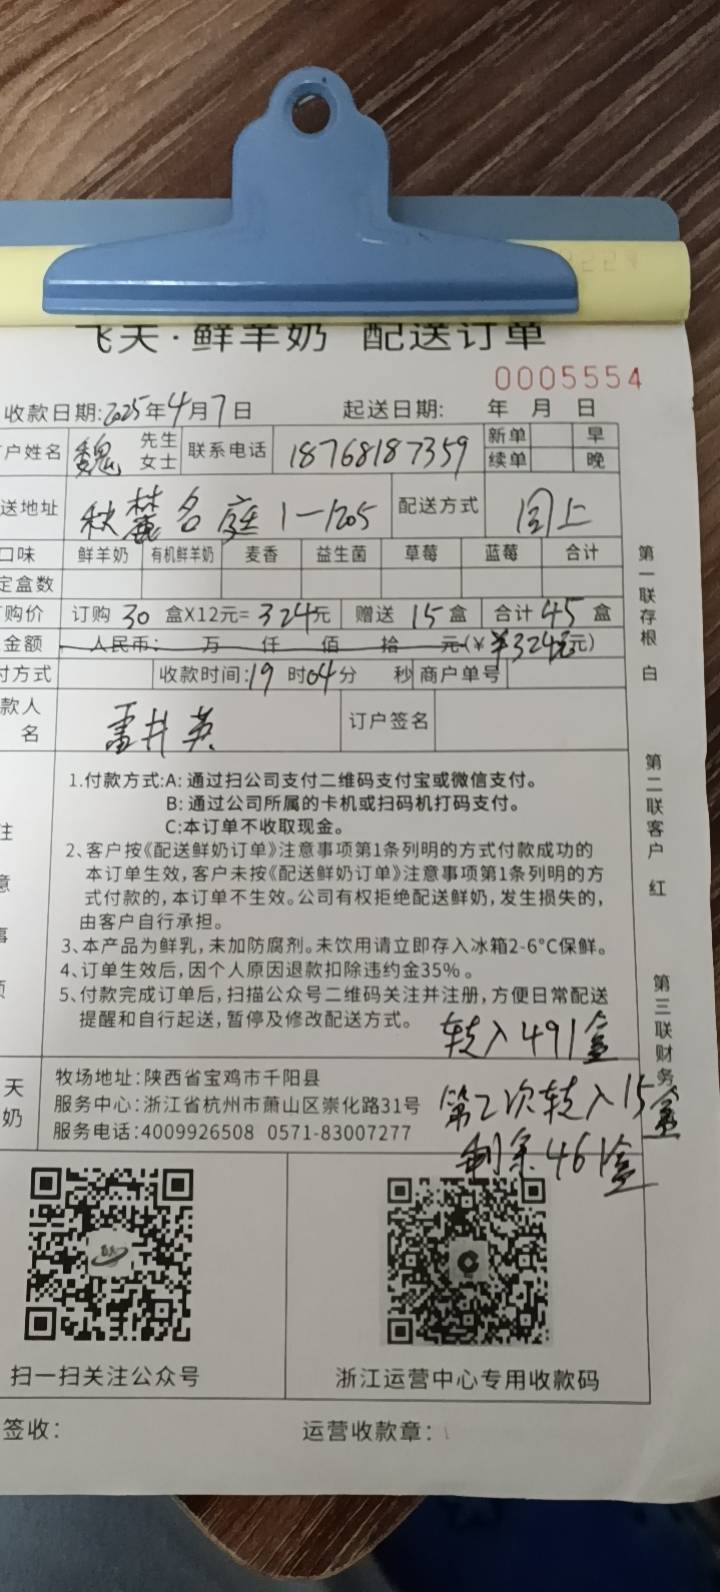 飞天·鲜羊奶 配送订单
0005554
收款日期:2025年4月7日 起送日期: 年 月 日
户姓名 魏 先生 女士 联系电话 18768187359 新单 早 续单 晚
送地址 秋麓名庭1-1205 配送方式 同上
口味 鲜羊奶 有机鲜羊奶 麦香 益生菌 草莓 蓝莓 合计
定盒数
购价 订购 30 盒X12元= 324元 赠送 15 盒 合计 45 盒
金额 人民币: 万 仟 佰 拾 元(¥ ¥324元元)
付方式 收款时间:19 时04分 秒 商户单号
款人名 雷井英 订户签名
1.付款方式:A: 通过扫公司支付二维码支付宝或微信支付。
B: 通过公司所属的卡机或扫码机打码支付。
C:本订单不收取现金。
2、客户按《配送鲜奶订单》注意事项第1条列明的方式付款成功的
本订单生效,客户未按《配送鲜奶订单》注意事项第1条列明的方
式付款的,本订单不生效。公司有权拒绝配送鲜奶,发生损失的,
由客户自行承担。
3、本产品为鲜乳,未加防腐剂。未饮用请立即存入冰箱2-6°C保鲜。
4、订单生效后,因个人原因退款扣除违约金35%。
5、付款完成订单后,扫描公众号二维码关注并注册,方便日常配送
提醒和自行起送,暂停及修改配送方式。
注意事项
转入491盒
第2次转入15盒
剩余461盒
天奶
牧场地址:陕西省宝鸡市千阳县
服务中心:浙江省杭州市萧山区崇化路31号
服务电话:4009926508 0571-83007277
扫一扫关注公众号
浙江运营中心专用收款码
签收:
运营收款章:
第一联存根 白
第二联客户 红
第三联财务